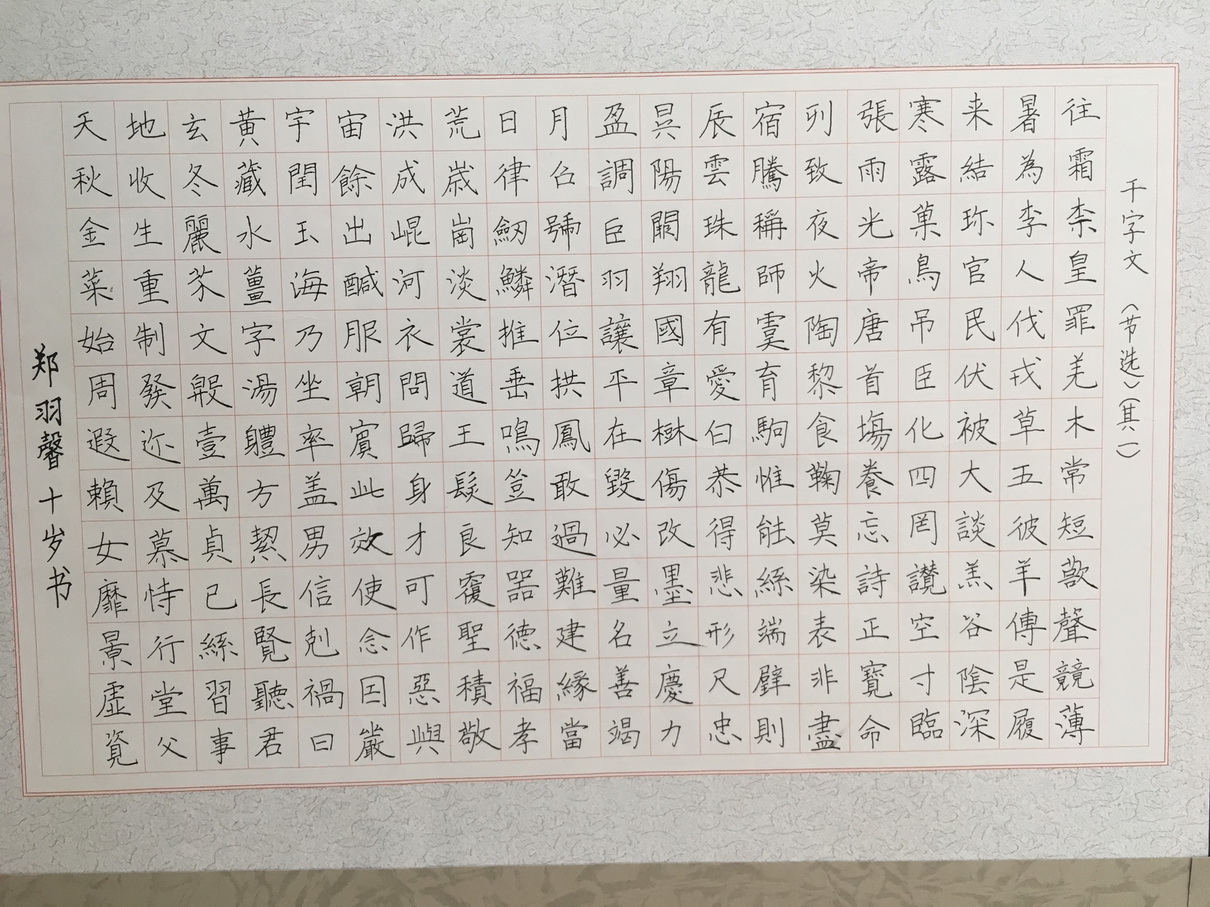 千字文（节选）（其一）
天地玄黄宇宙洪荒日月盈昃辰宿列張寒来暑往
秋收冬藏閏餘成歲律吕調陽雲騰致雨露結為霜
金生麗水玉出崐崗劔號巨闕珠稱夜光菓珎李柰
菜重芥薑海鹹河淡鱗潛羽翔龍師火帝鳥官人皇
始制文字乃服衣裳推位讓國有虞陶唐吊民伐罪
周發殷湯坐朝問道垂拱平章愛育黎首臣伏戎羌
遐迩壹體率賓歸王鳴鳳在樹白駒食場化被草木
賴及萬方盖此身髮四大五常恭惟鞠養豈敢毀傷
女慕貞絜男效才良知過必改得能莫忘罔談彼短
靡恃己長信使可覆器難量墨悲絲染詩讚羔羊
景行維賢剋念作聖德建名立形端表正空谷傳聲
虛堂習聽禍因惡積福緣善慶尺璧非寶寸陰是競
資父事君曰嚴與敬孝當竭力忠則盡命臨深履薄
郑羽馨十岁书